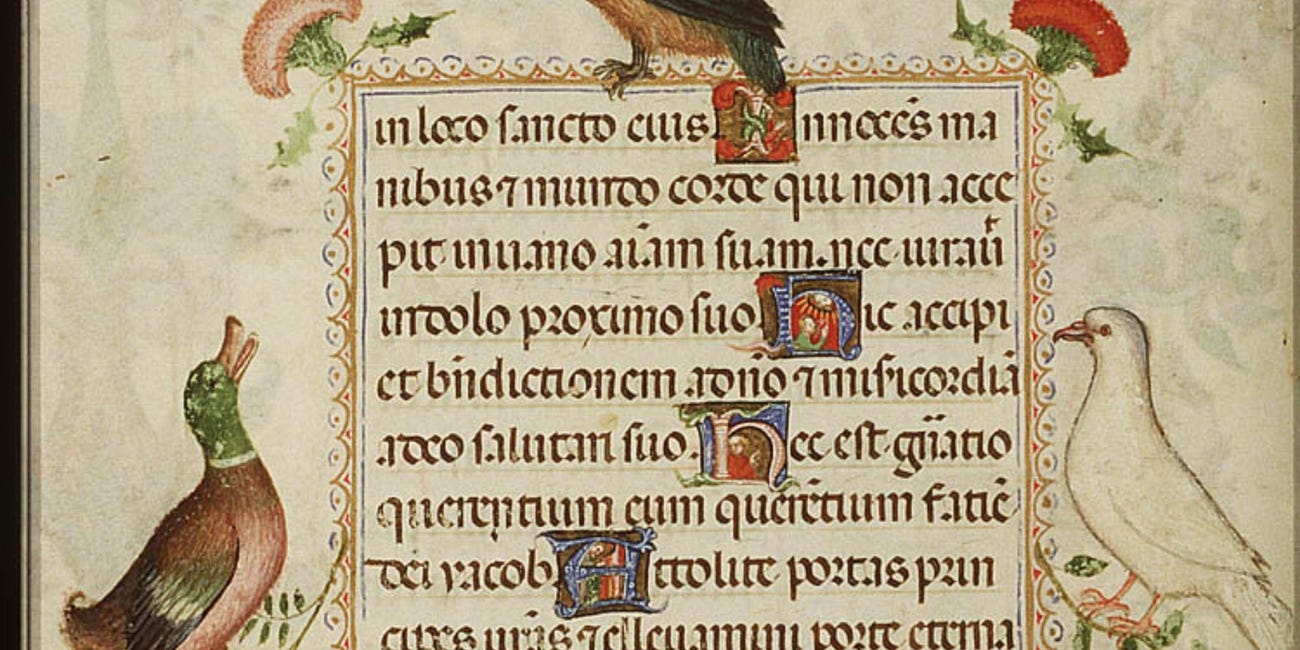 in loco sancto eius Innocēs ma
nibus ⁊ mundo corde qui non acce
pit in uano aīam suam. nec iurauit
in dolo proximo suo Hic accipi
et bn̄dictionem a dn̄o ⁊ misicordiā
a deo salutari suo. Hec est gn̄atio
querentium eum querētium faciē
dei yacob Attolite portas prin
cipes ur̄as ⁊ elleuamini porte eterna